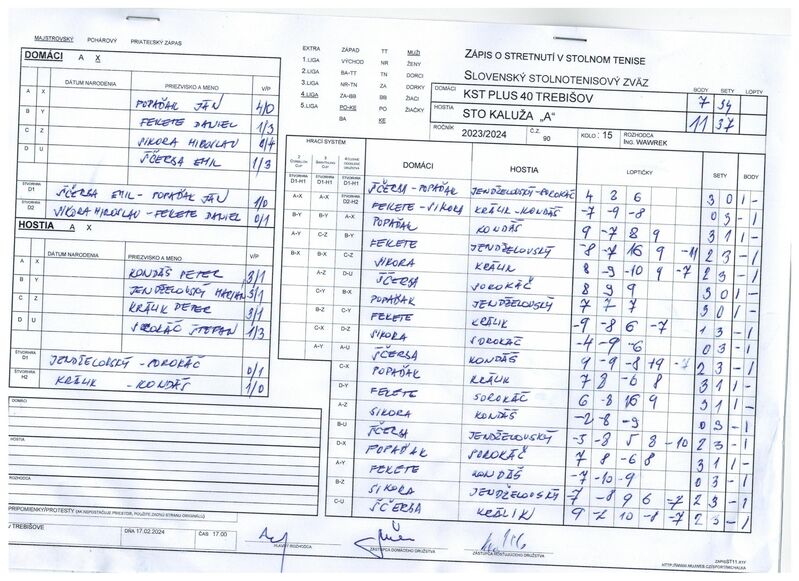 MAJSTROVSKÝ POHÁROVÝ PRIATEĽSKÝ ZÁPAS
DOMÁCI A X
DÁTUM NARODENIA PRIEZVISKO A MENO V/P
A X POPAĎAK JÁN 4/0
B Y FEKETE DANIEL 1/3
C Z SIKORA MIROSLAV 0/4
D U ŠČERBA EMIL 1/3
ŠTVORHRA D1 ŠČERBA EMIL - POPAĎAK JÁN 1/0
ŠTVORHRA D2 SIKORA MIROSLAV - FEKETE DANIEL 0/1
HOSTIA A X
DÁTUM NARODENIA PRIEZVISKO A MENO V/P
A X KONDÁŠ PETER 3/1
B Y JENDŽELOVSKÝ MARIAN 3/1
C Z KRÁLIK PETER 3/1
D U SOROKÁČ ŠTEFAN 1/3
ŠTVORHRA D1 JENDŽELOVSKÝ - SOROKÁČ 0/1
ŠTVORHRA H2 KRÁLIK - KONDÁŠ 1/0
DOMÁCI
HOSTIA
ROZHODCA
PRIPOMIENKY/PROTESTY (AK NEPOSTAČUJE PRIESTOR, POUŽITE ZADNÚ STRANU ORIGINÁLU)
V TREBIŠOVE DŇA 17.02.2024 ČAS 17.00
HLAVNÝ ROZHODCA
ZÁSTUPCA DOMÁCEHO DRUŽSTVA
ZÁSTUPCA HOSŤUJÚCEHO DRUŽSTVA
EXTRA ZÁPAD TT MUŽI
1.LIGA VÝCHOD NR ŽENY
2.LIGA BA-TT TN DORCI
3.LIGA NR-TN ZA DORKY
4.LIGA ZA-BB BB ŽIACI
5.LIGA PO-KE PO ŽIAČKY
BA KE
ZÁPIS O STRETNUTÍ V STOLNOM TENISE
SLOVENSKÝ STOLNOTENISOVÝ ZVÄZ
BODY SETY LOPTY
DOMÁCI KST PLUS 40 TREBIŠOV 7 34
HOSTIA STO KALUŽA „A" 11 37
ROČNÍK 2023/2024 Č.Z. 90 KOLO : 15 ROZHODCA ING. WAWREK
HRACÍ SYSTÉM DOMÁCI HOSTIA LOPTIČKY SETY BODY
D1-H1 D1-H1 D1-H1 ŠČERBA - POPAĎAK JENDŽELOVSKÝ - SOROKÁČ 4 8 6 3 0 1 -
A-X A-X D2-H2 FEKETE - SIKORA KRÁLIK - KONDÁŠ -7 -9 -8 0 3 - 1
B-Y B-Y A-X POPAĎAK KONDÁŠ 9 -7 8 9 3 1 1 -
A-Y C-Z B-Y FEKETE JENDŽELOVSKÝ -8 -7 16 9 -11 2 3 - 1
B-X B-X C-Z SIKORA KRÁLIK 8 -9 -10 9 -7 2 3 - 1
A-Z D-U ŠČERBA SOROKÁČ 8 9 9 3 0 1 -
C-Y B-X POPAĎAK JENDŽELOVSKÝ 7 7 7 3 0 1 -
B-Z C-Y FEKETE KRÁLIK -9 -8 6 -7 1 3 - 1
C-X D-Z SIKORA SOROKÁČ -4 -9 -6 0 3 - 1
A-Y A-U ŠČERBA KONDÁŠ 9 -9 -8 19 -7 2 3 - 1
C-X POPAĎAK KRÁLIK 7 8 -6 8 3 1 1 -
D-Y FEKETE SOROKÁČ 6 -8 16 9 3 1 1 -
A-Z SIKORA KONDÁŠ -2 -8 -9 0 3 - 1
B-U ŠČERBA JENDŽELOVSKÝ -5 -8 5 8 -10 2 3 - 1
D-X POPAĎAK SOROKÁČ 7 8 -6 8 3 1 1 -
A-Y FEKETE KONDÁŠ -7 -10 -9 0 3 - 1
B-Z SIKORA JENDŽELOVSKÝ 7 -8 9 6 -7 2 3 - 1
C-U ŠČERBA KRÁLIK 9 -2 10 -8 -7 2 3 - 1